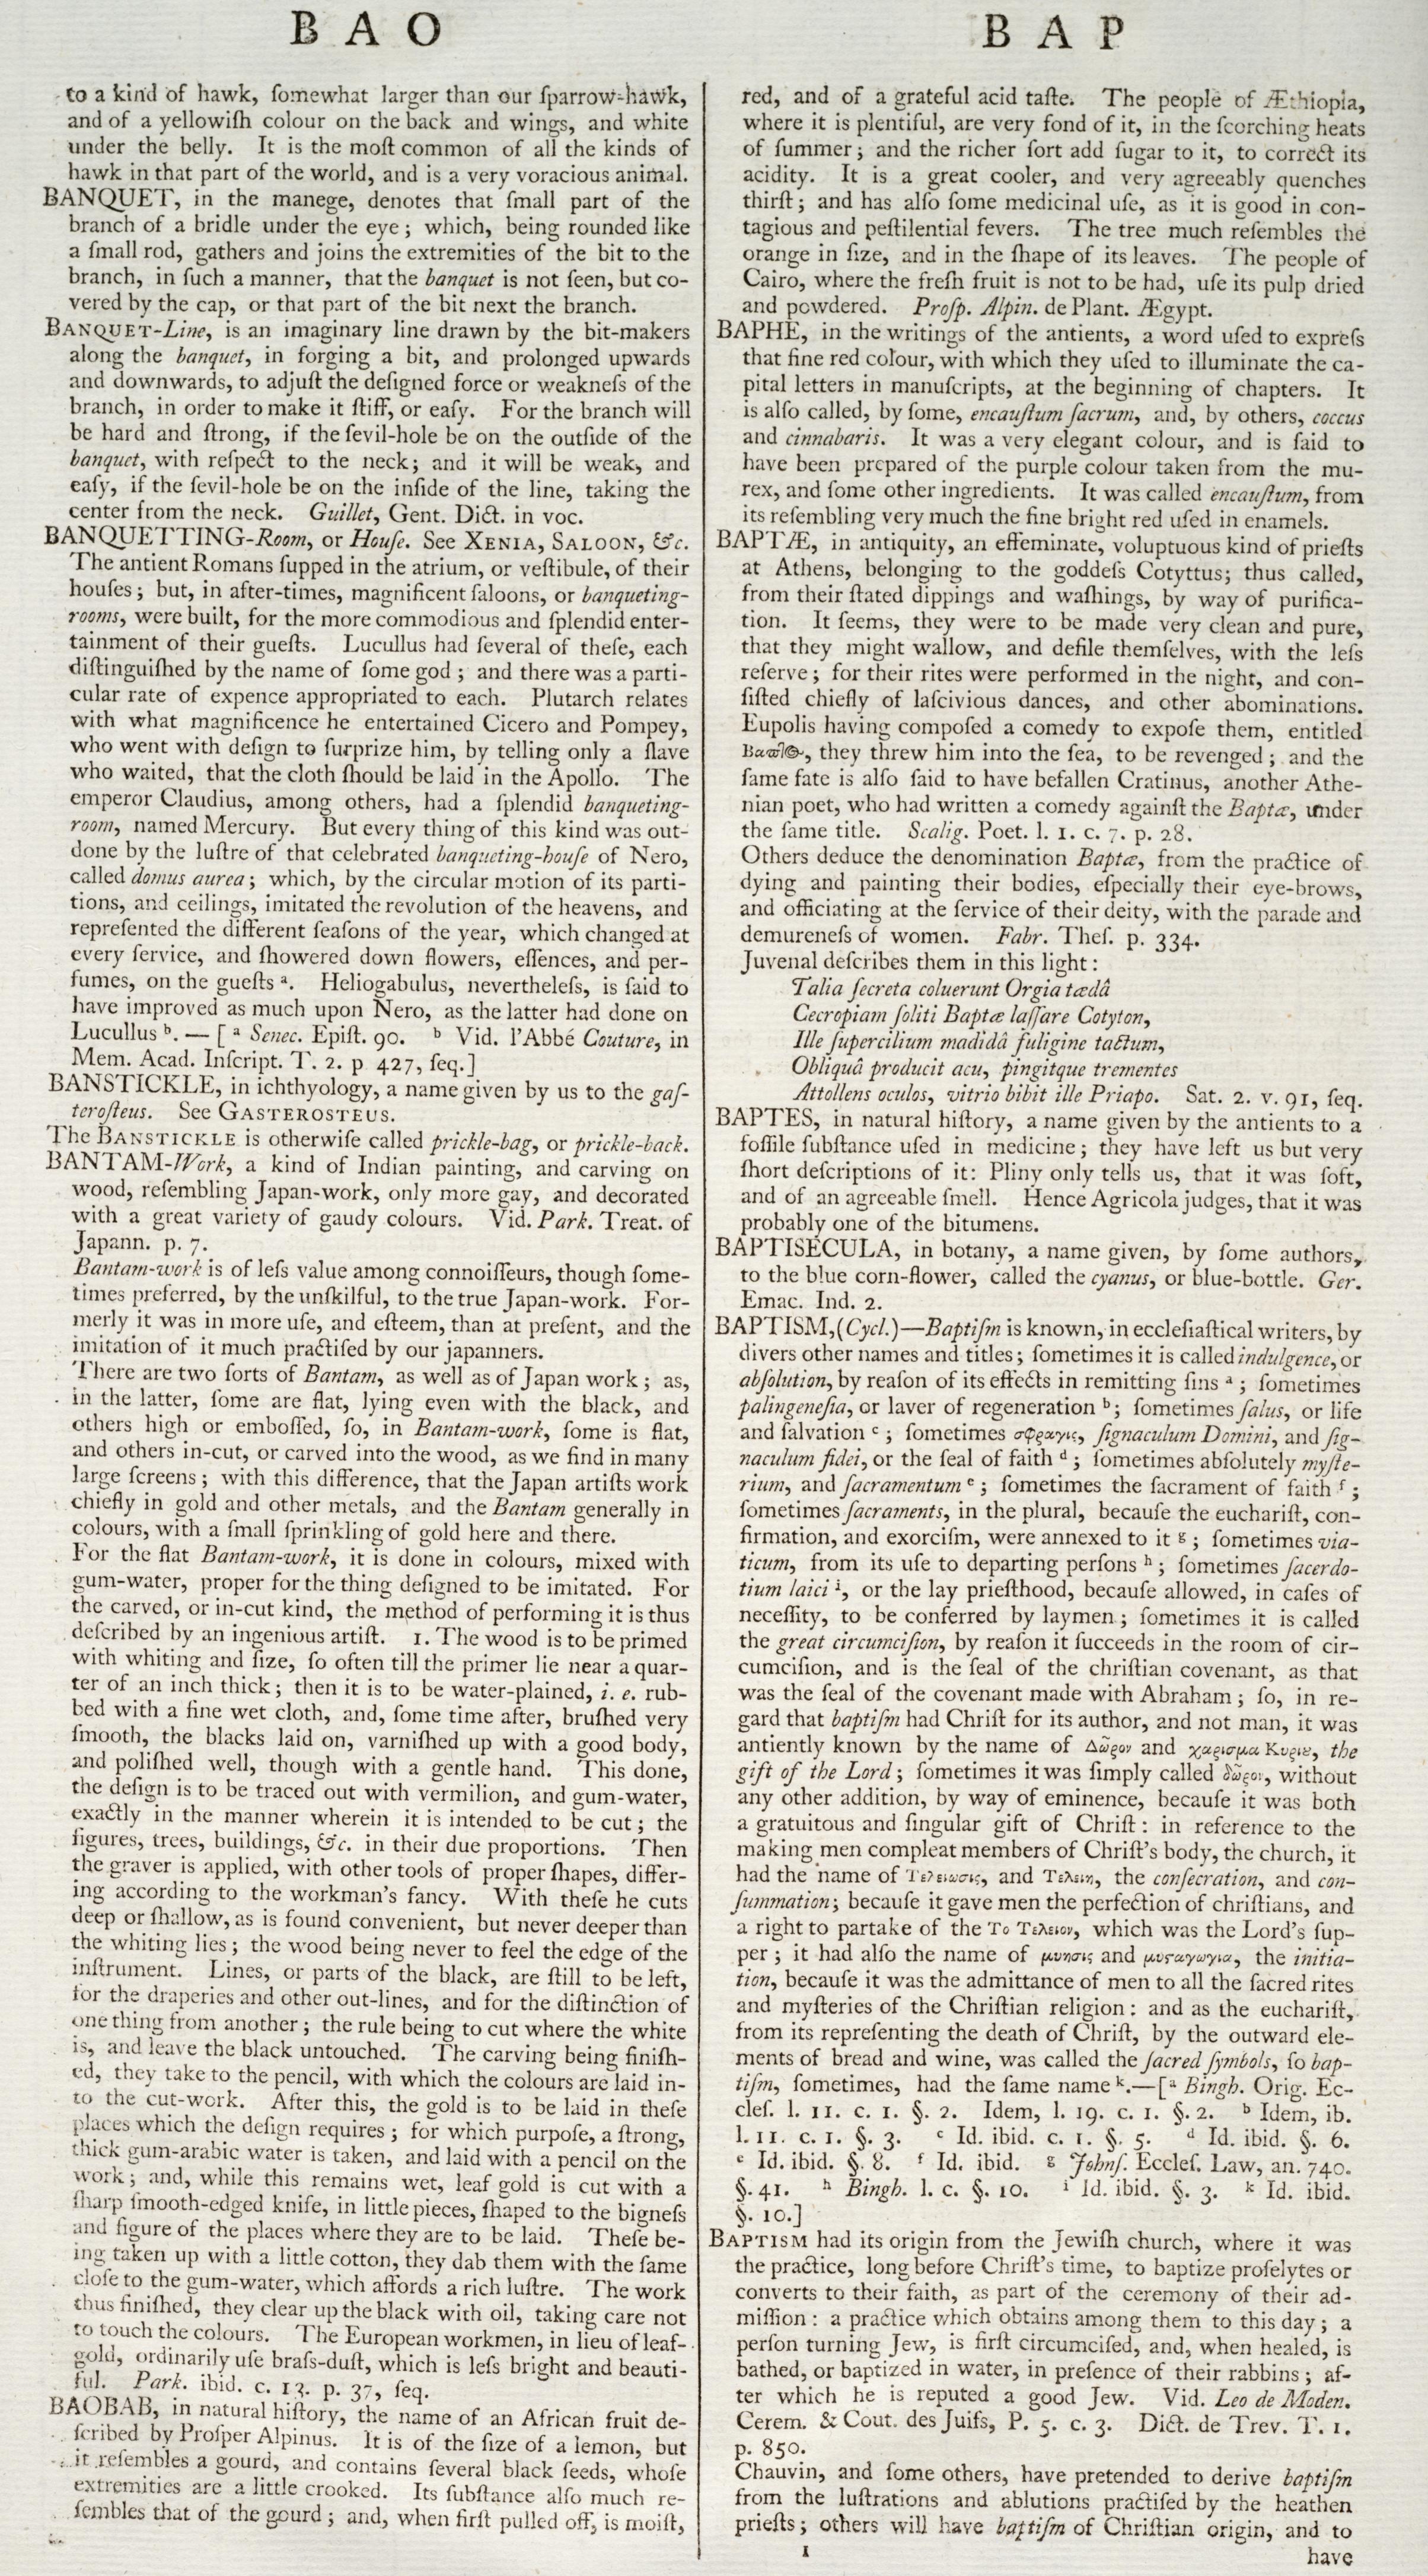 B A O
to a kind of hawk, ſomewhat larger than our ſparrow-hawk,
and of a yellowiſh colour on the back and wings, and white
under the belly. It is the moſt common of all the kinds of
hawk in that part of the world, and is a very voracious animal.
BANQUET, in the manege, denotes that ſmall part of the
branch of a bridle under the eye; which, being rounded like
a ſmall rod, gathers and joins the extremities of the bit to the
branch, in ſuch a manner, that the banquet is not ſeen, but co-
vered by the cap, or that part of the bit next the branch.
BANQUET-Line, is an imaginary line drawn by the bit-makers
along the banquet, in forging a bit, and prolonged upwards
and downwards, to adjuſt the deſigned force or weakneſs of the
branch, in order to make it ſtiff, or eaſy. For the branch will
be hard and ſtrong, if the ſevil-hole be on the outſide of the
banquet, with reſpect to the neck; and it will be weak, and
eaſy, if the ſevil-hole be on the inſide of the line, taking the
center from the neck. Guillet, Gent. Dict. in voc.
BANQUETTING-Room, or Houſe. See XENIA, SALOON, &c.
The antient Romans ſupped in the atrium, or veſtibule, of their
houſes; but, in after-times, magnificent ſaloons, or banqueting-
rooms, were built, for the more commodious and ſplendid enter-
tainment of their gueſts. Lucullus had ſeveral of theſe, each
diſtinguiſhed by the name of ſome god; and there was a parti-
cular rate of expence appropriated to each. Plutarch relates
with what magnificence he entertained Cicero and Pompey,
who went with deſign to ſurprize him, by telling only a ſlave
who waited, that the cloth ſhould be laid in the Apollo. The
emperor Claudius, among others, had a ſplendid banqueting-
room, named Mercury. But every thing of this kind was out-
done by the luſtre of that celebrated banqueting-houſe of Nero,
called domus aurea; which, by the circular motion of its parti-
tions, and ceilings, imitated the revolution of the heavens, and
repreſented the different ſeaſons of the year, which changed at
every ſervice, and ſhowered down flowers, eſſences, and per-
fumes, on the gueſts ᵃ. Heliogabulus, nevertheleſs, is ſaid to
have improved as much upon Nero, as the latter had done on
Lucullus ᵇ. — [ᵃ Senec. Epiſt. 90. ᵇ Vid. l'Abbé Couture, in
Mem. Acad. Inſcript. T. 2. p 427, ſeq.]
BANSTICKLE, in ichthyology, a name given by us to the gaſ-
teroſteus. See GASTEROSTEUS.
The BANSTICKLE is otherwiſe called prickle-bag, or prickle-back.
BANTAM-Work, a kind of Indian painting, and carving on
wood, reſembling Japan-work, only more gay, and decorated
with a great variety of gaudy colours. Vid. Park. Treat. of
Japann. p. 7.
Bantam-work is of leſs value among connoiſſeurs, though ſome-
times preferred, by the unſkilful, to the true Japan-work. For-
merly it was in more uſe, and eſteem, than at preſent, and the
imitation of it much practiſed by our japanners.
There are two ſorts of Bantam, as well as of Japan work; as,
in the latter, ſome are flat, lying even with the black, and
others high or emboſſed, ſo, in Bantam-work, ſome is flat,
and others in-cut, or carved into the wood, as we find in many
large ſcreens; with this difference, that the Japan artiſts work
chiefly in gold and other metals, and the Bantam generally in
colours, with a ſmall ſprinkling of gold here and there.
For the flat Bantam-work, it is done in colours, mixed with
gum-water, proper for the thing deſigned to be imitated. For
the carved, or in-cut kind, the method of performing it is thus
deſcribed by an ingenious artiſt. 1. The wood is to be primed
with whiting and ſize, ſo often till the primer lie near a quar-
ter of an inch thick; then it is to be water-plained, i. e. rub-
bed with a fine wet cloth, and, ſome time after, bruſhed very
ſmooth, the blacks laid on, varniſhed up with a good body,
and poliſhed well, though with a gentle hand. This done,
the deſign is to be traced out with vermilion, and gum-water,
exactly in the manner wherein it is intended to be cut; the
figures, trees, buildings, &c. in their due proportions. Then
the graver is applied, with other tools of proper ſhapes, differ-
ing according to the workman's fancy. With theſe he cuts
deep or ſhallow, as is found convenient, but never deeper than
the whiting lies; the wood being never to feel the edge of the
inſtrument. Lines, or parts of the black, are ſtill to be left,
for the draperies and other out-lines, and for the diſtinction of
one thing from another; the rule being to cut where the white
is, and leave the black untouched. The carving being finiſh-
ed, they take to the pencil, with which the colours are laid in-
to the cut-work. After this, the gold is to be laid in theſe
places which the deſign requires; for which purpoſe, a ſtrong,
thick gum-arabic water is taken, and laid with a pencil on the
work; and, while this remains wet, leaf gold is cut with a
ſharp ſmooth-edged knife, in little pieces, ſhaped to the bigneſs
and figure of the places where they are to be laid. Theſe be-
ing taken up with a little cotton, they dab them with the ſame
cloſe to the gum-water, which affords a rich luſtre. The work
thus finiſhed, they clear up the black with oil, taking care not
to touch the colours. The European workmen, in lieu of leaf-
gold, ordinarily uſe braſs-duſt, which is leſs bright and beauti-
ful. Park. ibid. c. 13. p. 37, ſeq.
BAOBAB, in natural hiſtory, the name of an African fruit de-
ſcribed by Proſper Alpinus. It is of the ſize of a lemon, but
it reſembles a gourd, and contains ſeveral black ſeeds, whoſe
extremities are a little crooked. Its ſubſtance alſo much re-
ſembles that of the gourd; and, when firſt pulled off, is moiſt,
B A P
red, and of a grateful acid taſte. The people of Æthiopia,
where it is plentiful, are very fond of it, in the ſcorching heats
of ſummer; and the richer ſort add ſugar to it, to correct its
acidity. It is a great cooler, and very agreeably quenches
thirſt; and has alſo ſome medicinal uſe, as it is good in con-
tagious and peſtilential fevers. The tree much reſembles the
orange in ſize, and in the ſhape of its leaves. The people of
Cairo, where the freſh fruit is not to be had, uſe its pulp dried
and powdered. Proſp. Alpin. de Plant. Ægypt.
BAPHE, in the writings of the antients, a word uſed to expreſs
that fine red colour, with which they uſed to illuminate the ca-
pital letters in manuſcripts, at the beginning of chapters. It
is alſo called, by ſome, encauſtum ſacrum, and, by others, coccus
and cinnabaris. It was a very elegant colour, and is ſaid to
have been prepared of the purple colour taken from the mu-
rex, and ſome other ingredients. It was called encauſtum, from
its reſembling very much the fine bright red uſed in enamels.
BAPTÆ, in antiquity, an effeminate, voluptuous kind of prieſts
at Athens, belonging to the goddeſs Cotyttus; thus called,
from their ſtated dippings and waſhings, by way of purifica-
tion. It ſeems, they were to be made very clean and pure,
that they might wallow, and defile themſelves, with the leſs
reſerve; for their rites were performed in the night, and con-
ſiſted chiefly of laſcivious dances, and other abominations.
Eupolis having compoſed a comedy to expoſe them, entitled
they threw him into the ſea, to be revenged; and the
ſame fate is alſo ſaid to have befallen Cratinus, another Athe-
nian poet, who had written a comedy againſt the Baptæ, under
the ſame title. Scalig. Poet. l. 1. c. 7. p. 28.
Others deduce the denomination Baptæ, from the practice of
dying and painting their bodies, eſpecially their eye-brows,
and officiating at the ſervice of their deity, with the parade and
demureneſs of women. Fabr. Theſ. p. 334.
Juvenal deſcribes them in this light:
Talia ſecreta coluerunt Orgia tædâ
Cecropiam ſoliti Baptæ laſſare Cotyton,
Ille ſupercilium madidâ fuligine tactum,
Obliquâ producit acu, pingitque trementes
Attollens oculos, vitrio bibit ille Priapo. Sat. 2. v. 91, ſeq.
BAPTES, in natural hiſtory, a name given by the antients to a
foſſile ſubſtance uſed in medicine; they have left us but very
ſhort deſcriptions of it: Pliny only tells us, that it was ſoft,
and of an agreeable ſmell. Hence Agricola judges, that it was
probably one of the bitumens.
BAPTISECULA, in botany, a name given, by ſome authors,
to the blue corn-flower, called the cyanus, or blue-bottle. Ger.
Emac. Ind. 2.
BAPTISM, (Cycl.)—Baptiſm is known, in eccleſiaſtical writers, by
divers other names and titles; ſometimes it is called indulgence, or
abſolution, by reaſon of its effects in remitting ſins ᵃ; ſometimes
palingeneſia, or laver of regeneration ᵇ; ſometimes ſalus, or life
and ſalvation ᶜ; ſometimes σφραγις, ſignaculum Domini, and ſig-
naculum fidei, or the ſeal of faith ᵈ; ſometimes abſolutely myſte-
rium, and ſacramentum ᵉ; ſometimes the ſacrament of faith ᶠ;
ſometimes ſacraments, in the plural, becauſe the euchariſt, con-
firmation, and exorciſm, were annexed to it ᵍ; ſometimes via-
ticum, from its uſe to departing perſons ʰ; ſometimes ſacerdo-
tium laici ⁱ, or the lay prieſthood, becauſe allowed, in caſes of
neceſſity, to be conferred by laymen; ſometimes it is called
the great circumciſion, by reaſon it ſucceeds in the room of cir-
cumciſion, and is the ſeal of the chriſtian covenant, as that
was the ſeal of the covenant made with Abraham; ſo, in re-
gard that baptiſm had Chriſt for its author, and not man, it was
antiently known by the name of Δῶρον and χαρισμα Κυριȣ, the
gift of the Lord; ſometimes it was ſimply called δῶρον, without
any other addition, by way of eminence, becauſe it was both
a gratuitous and ſingular gift of Chriſt: in reference to the
making men compleat members of Chriſt's body, the church, it
had the name of Τελειωσις, and Τελειη, the conſecration, and con-
ſummation; becauſe it gave men the perfection of chriſtians, and
a right to partake of the Το Τελειον, which was the Lord's ſup-
per; it had alſo the name of μυησις and μυϛαγωγια, the initia-
tion, becauſe it was the admittance of men to all the ſacred rites
and myſteries of the Chriſtian religion: and as the euchariſt,
from its repreſenting the death of Chriſt, by the outward ele-
ments of bread and wine, was called the ſacred ſymbols, ſo bap-
tiſm, ſometimes, had the ſame name ᵏ.—[ᵃ Bingh. Orig. Ec-
cleſ. l. 11. c. 1. §. 2. Idem, l. 19. c. 1. §. 2. ᵇ Idem, ib.
l. 11. c. 1. §. 3. ᶜ Id. ibid. c. 1. §. 5. ᵈ Id. ibid. §. 6.
ᵉ Id. ibid. §. 8. ᶠ Id. ibid. ᵍ Johnſ. Eccleſ. Law, an. 740.
§. 41. ʰ Bingh. l. c. §. 10. ⁱ Id. ibid. §. 3. ᵏ Id. ibid.
§. 10.]
BAPTISM had its origin from the Jewiſh church, where it was
the practice, long before Chriſt's time, to baptize proſelytes or
converts to their faith, as part of the ceremony of their ad-
miſſion: a practice which obtains among them to this day; a
perſon turning Jew, is firſt circumciſed, and, when healed, is
bathed, or baptized in water, in preſence of their rabbins; af-
ter which he is reputed a good Jew. Vid. Leo de Moden.
Cerem. & Cout. des Juifs, P. 5. c. 3. Dict. de Trev. T. 1.
p. 850.
Chauvin, and ſome others, have pretended to derive baptiſm
from the luſtrations and ablutions practiſed by the heathen
prieſts; others will have baptiſm of Chriſtian origin, and to
1
have